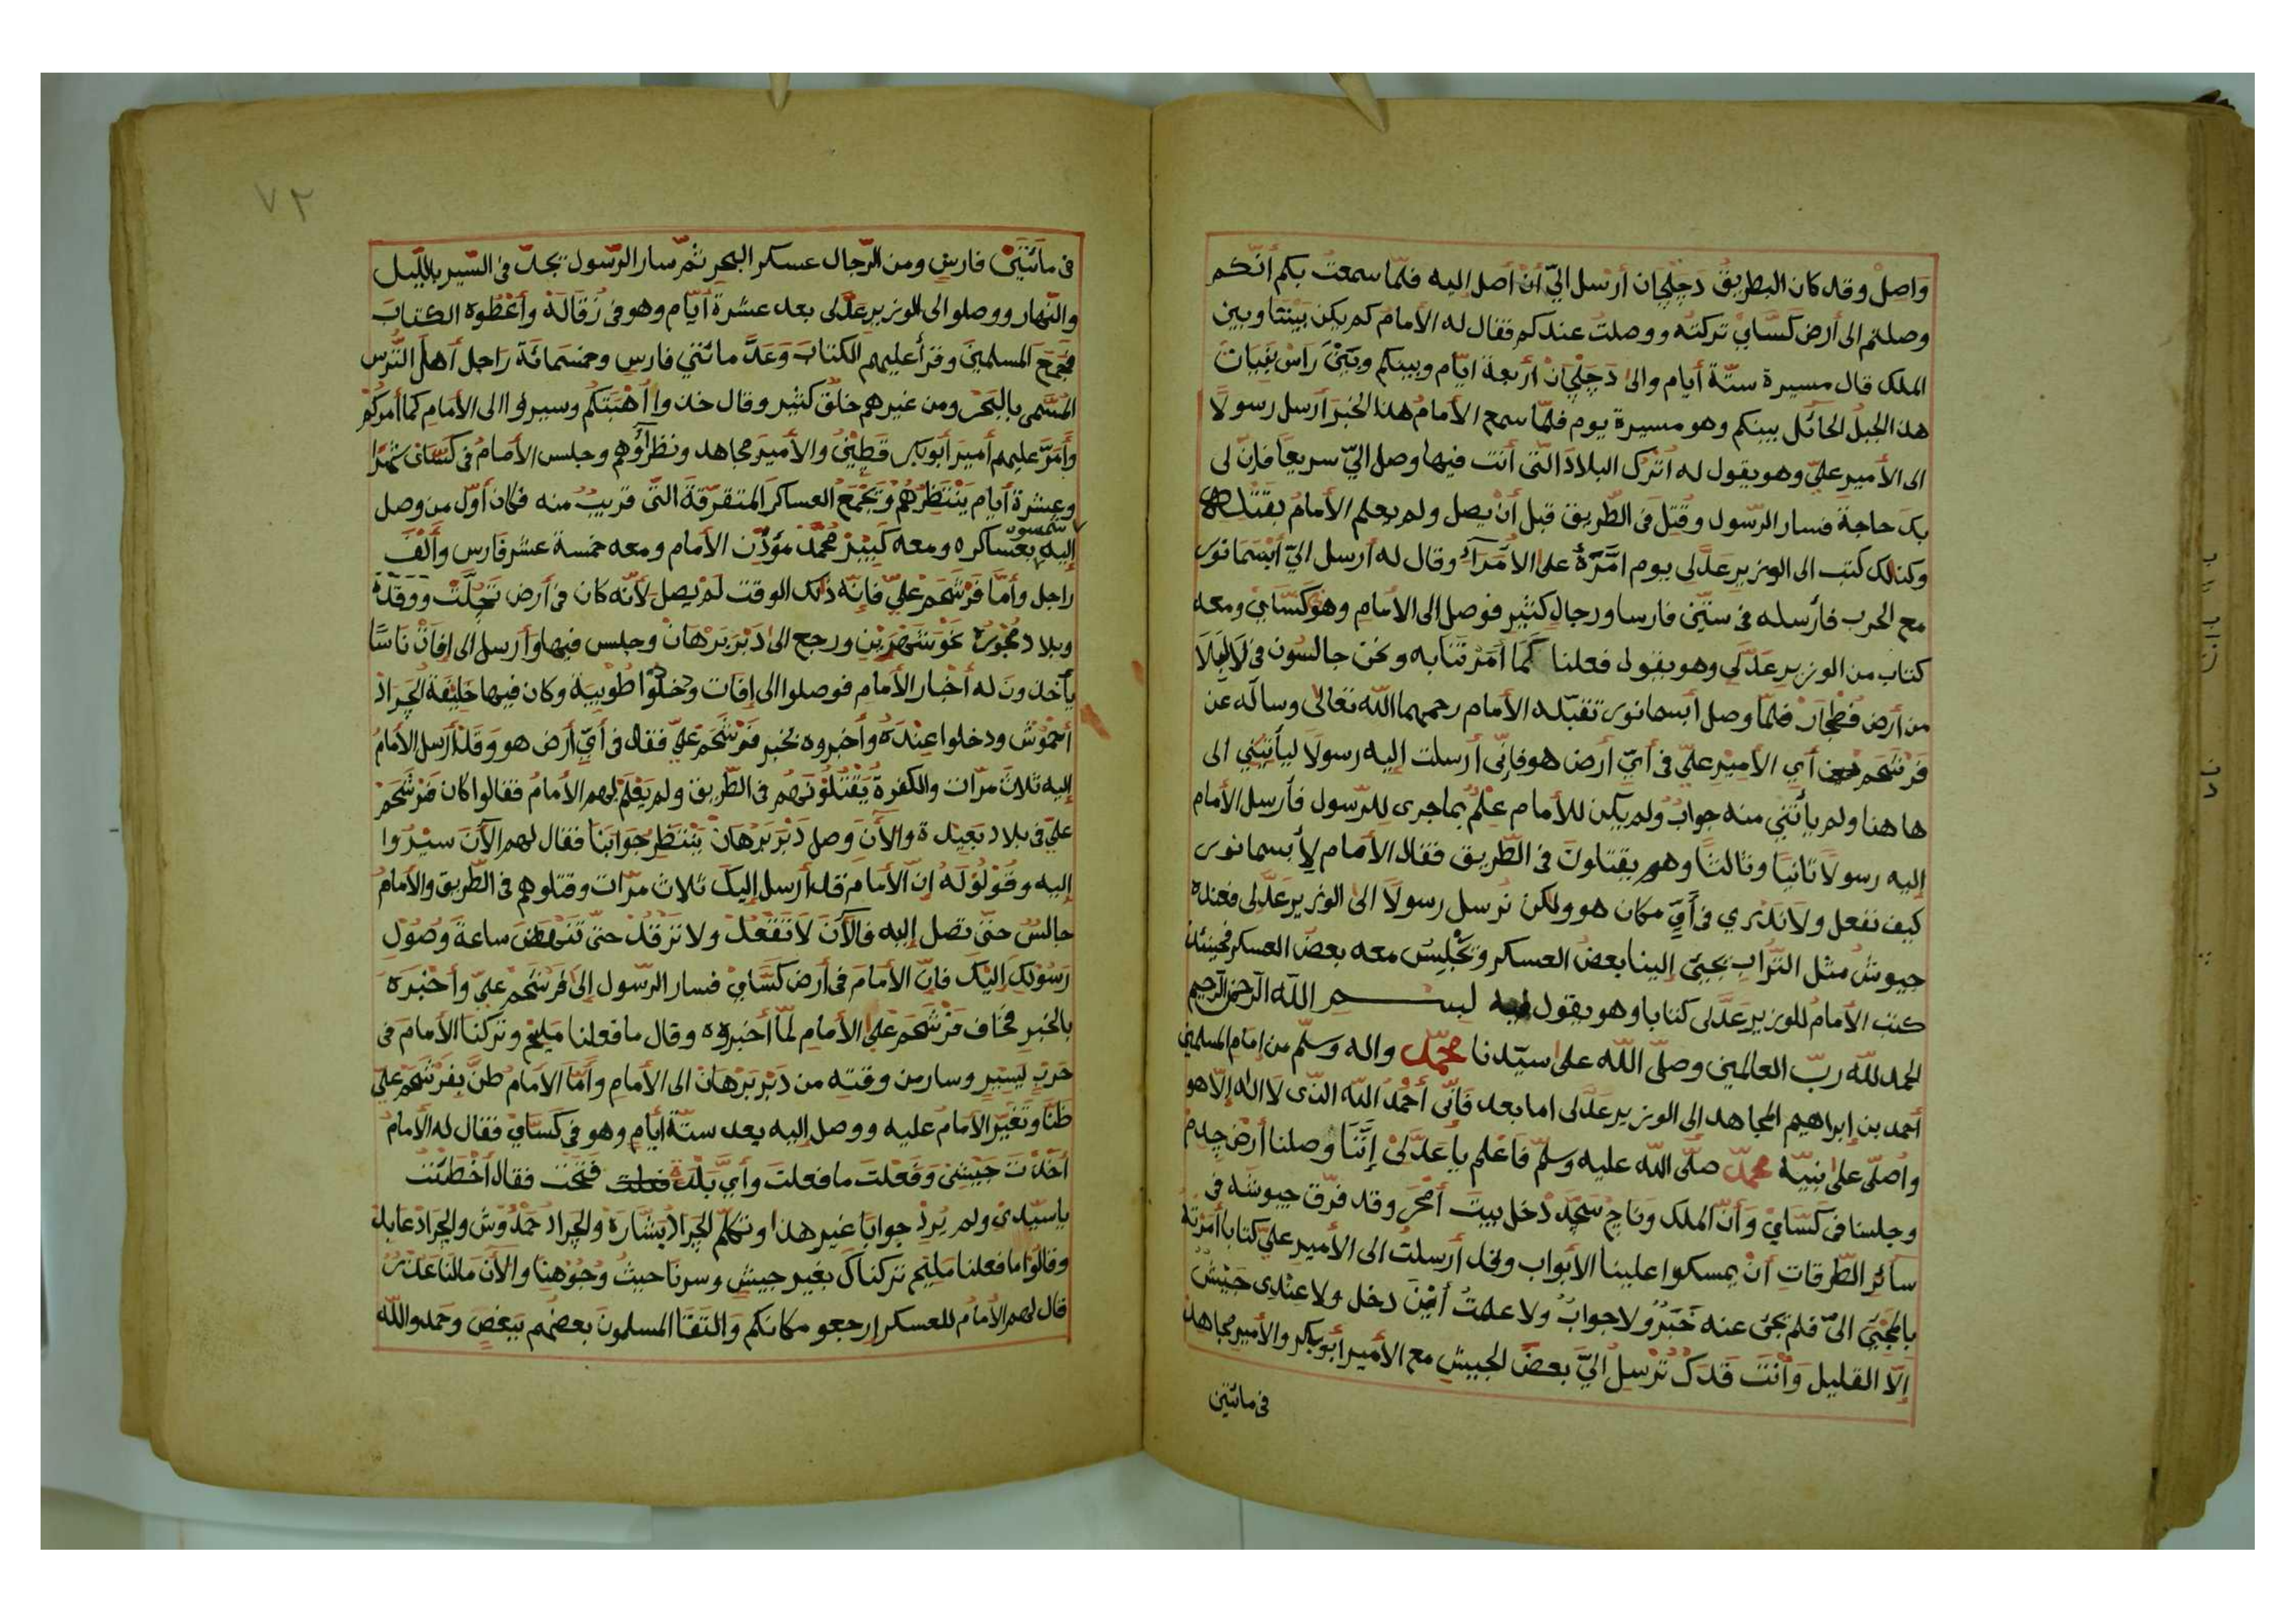 واصل وقد كان البطريق دَجِلْجان أرسل اليّ أن أصل إليه فلمّا سمعت بكم أنّكم
وصلتم الى أرض كَسَّايْ تركته ووصلت عندكم فقال له الأمام كم يكن بيننا وبين
الملك قال مسيرة ستّة أيام والى دَجِلْجانْ أربعة ايّام وبينكم وبين راس بنيات
هذا الجبل الحائل بينكم وهو مسيرة يوم فلمّا سمع الأمام هذا الخبر أرسل رسولا
الى الأمير عليّ وهو يقول له أترك البلاد التّى أنت فيها وصل اليّ سريعا فإنّ لى
بك حاجة فسار الرّسول وقُتل فى الطّريق قبل أن يصل ولم يعلم الأمام بقتله
وكذلك كتب الى الوزير عَدَّلى يوم امَّرَهُ على الأمَراء وقال له أرسل اليّ أبسمانور
مع الحرب فأرسله فى ستّين فارسا ورجال كثير فوصل الى الامام وهو كَسَّايْ ومعه
كتاب من الوزير عَدَّلى وهو يقول فعلنا كما أمرتنا به ونحن جالسون فى لالِبَلا
من أرض فَطَجارْ فلمّا وصل أبسمانور تقبّله الأمام رحمهما اللّه تعالى وسأله عن
فَرَشَحَم أي الأمير عليّ فى أيّ أرض هو فإنّى أرسلت إليه رسولا ليأتيني الى
هاهنا ولم يأتني منه جواب ولم يكن للأمام علم بما جرى للرّسول فأرسل الأمام
إليه رسولا ثانيا وثالثا وهم يقتلون فى الطّريق فقال الأمام لأبسمانور
كيف نفعل ولا ندري فى أيّ مكان هو ولكن نرسل رسولا الى الوزير عَدَّلى فعنده
جيوش مثل التّراب يجئ إلينا بعض العسكر وتجلس معه بعض العسكر فحينئذ
كتب الأمام للوزير عَدَّلى كتابا وهو يقول فيه بسم اللّه الرّحمن الرّحيم
الحمد للّه ربّ العالمين وصلّى اللّه على سيّدنا محمّد واله وسلّم من إمام المسلمين
أحمد بن إبراهيم المجاهد الى الوزير عدّلى اما بعد فانّى أحمد اللّه الذّى لا اله إلّا هو
واُصلّى على نبيّه محمّد صلّى اللّه عليه وسلّم فاعلم يا عَدَّلى إنّنا وصلنا أرض جِدِمْ
وجلسنا فى كَسَّايْ وأنّ الملك وناج سَجَدْ دخل بيت أمْحَر وقد فرّق جيوشه فى
سائر الطّرقات أن يمسكوا علينا الأبواب ونحن أرسلت الى الأمير عليّ كتابا أمرته
بالمجئ الىّ فلم يجئ عنه خبر ولا جواب ولا علمت أين دخل ولا عندى جيش
إلّا القليل وأنت قدك ترسل اليّ بعض الجيش مع الأمير أبو بكر والأمير مجاهد
فى مائتين
٧٢
فى مائتين فارس ومن الرّجال عسكر البحر ثمّ سار الرّسول يجدّ فى السّير بالليل
والنّهار ووصلوا الى الوزير عَدَّلى بعد عشرة أيّام وهو فى زُقَالَة وأعطوه الكتاب
فجمع المسلمين وقرأ عليهم الكتاب وعدّ مائتي فارس وخمسمائة راجل أهل التّرس
المسّمى بالبحر ومن غيرهم خلق كثير وقال خذوا أهبتكم وسيروا الى الأمام كما أمركم
وأمّر عليهم أمير أبو بكر قَطِيْن والأمير مجاهد ونظراؤهم وجلس الأمام فى كَسَّاى شهرا
وعشرة أيام ينتظرهم وتجمع العساكر المتفرّقة التّى قريب منه فكان أوّل من وصل
إليه شمسوه بعساكره ومعه كَبِيْرْ محمّد مؤذّن الأمام ومعه خمسة عشر فارس وألف
راجل وأمّا فَرَشَحَم عليّ فإنّه ذلك الوقت لم يصل لأنّه كان فى أرض وَوَقْدَة
وبلاد نحو شهرين ورجع الى دَبْرَبَرْهَانْ وجلس فيها وأرسل الى إفَاتْ ناسا
يأخذون له أخبار الأمام فوصلوا الى إفات ودخلوا طُوْبِيَة وكان فيها خليفة الجراد
أحموش ودخلوا عنده وأخبروه بخبر فَرَشَحَم عليّ فقال فى أيّ أرض هو وقد أرسل الأمام
إليه ثلاث مرّات والكفرة يقتلونهم فى الطّريق ولم يعلم بهم الأمام فقالوا كان فَرَشَحَمْ
عليّ فى بلاد بعيدة والأن وصل دَبْرَبَرْهَانْ ينتظر جوابنا فقال لهم الآن سيروا
إليه وقولوا له إنّ الأمام قد أرسل إليك ثلاث مرّات وقتلوهم فى الطّريق والأمام
جالس حتّى تصل إليه فالآن لا تقعد ولا ترقد حتّى تنهض ساعة وصول
رسولك إليك فإنّ الأمام فى أرض كَسَّايْ فسار الرّسول إلى فَرَشَحَم عليّ وأخبره
بالخبر فخاف فَرَشَحَم على الأمام لمّا أخبروه وقال ما فعلنا مليح وتركنا الأمام فى
حرب يسير وسار من وقته من دَبْرَبَرْهَانْ الى الأمام وأمّا الأمام ظنّ بفَرَشَحَم عليّ
ظنّا وتغيّر الأمام عليه ووصل إليه بعد ستّة أيام وهو فى كَسَّايْ فقال له الأمام
أخذت جيشى وفعلت ما فعلت وأيّ بلدة فتحت فقال أخطئت
يا سيّدى ولم يرد جوابا غير هذا وتكلّم الجراد بشارة والجراد حَمْدُوْش والجراد عابد
وقالوا ما فعلنا مليح تركناك بغير جيش وسرنا حيث وجوهنا والأن مالنا عذر
قال لهم الأمام للعسكر إرجعو مكانكم والتقا المسلمون بعضهم ببعض وحمدو اللّه